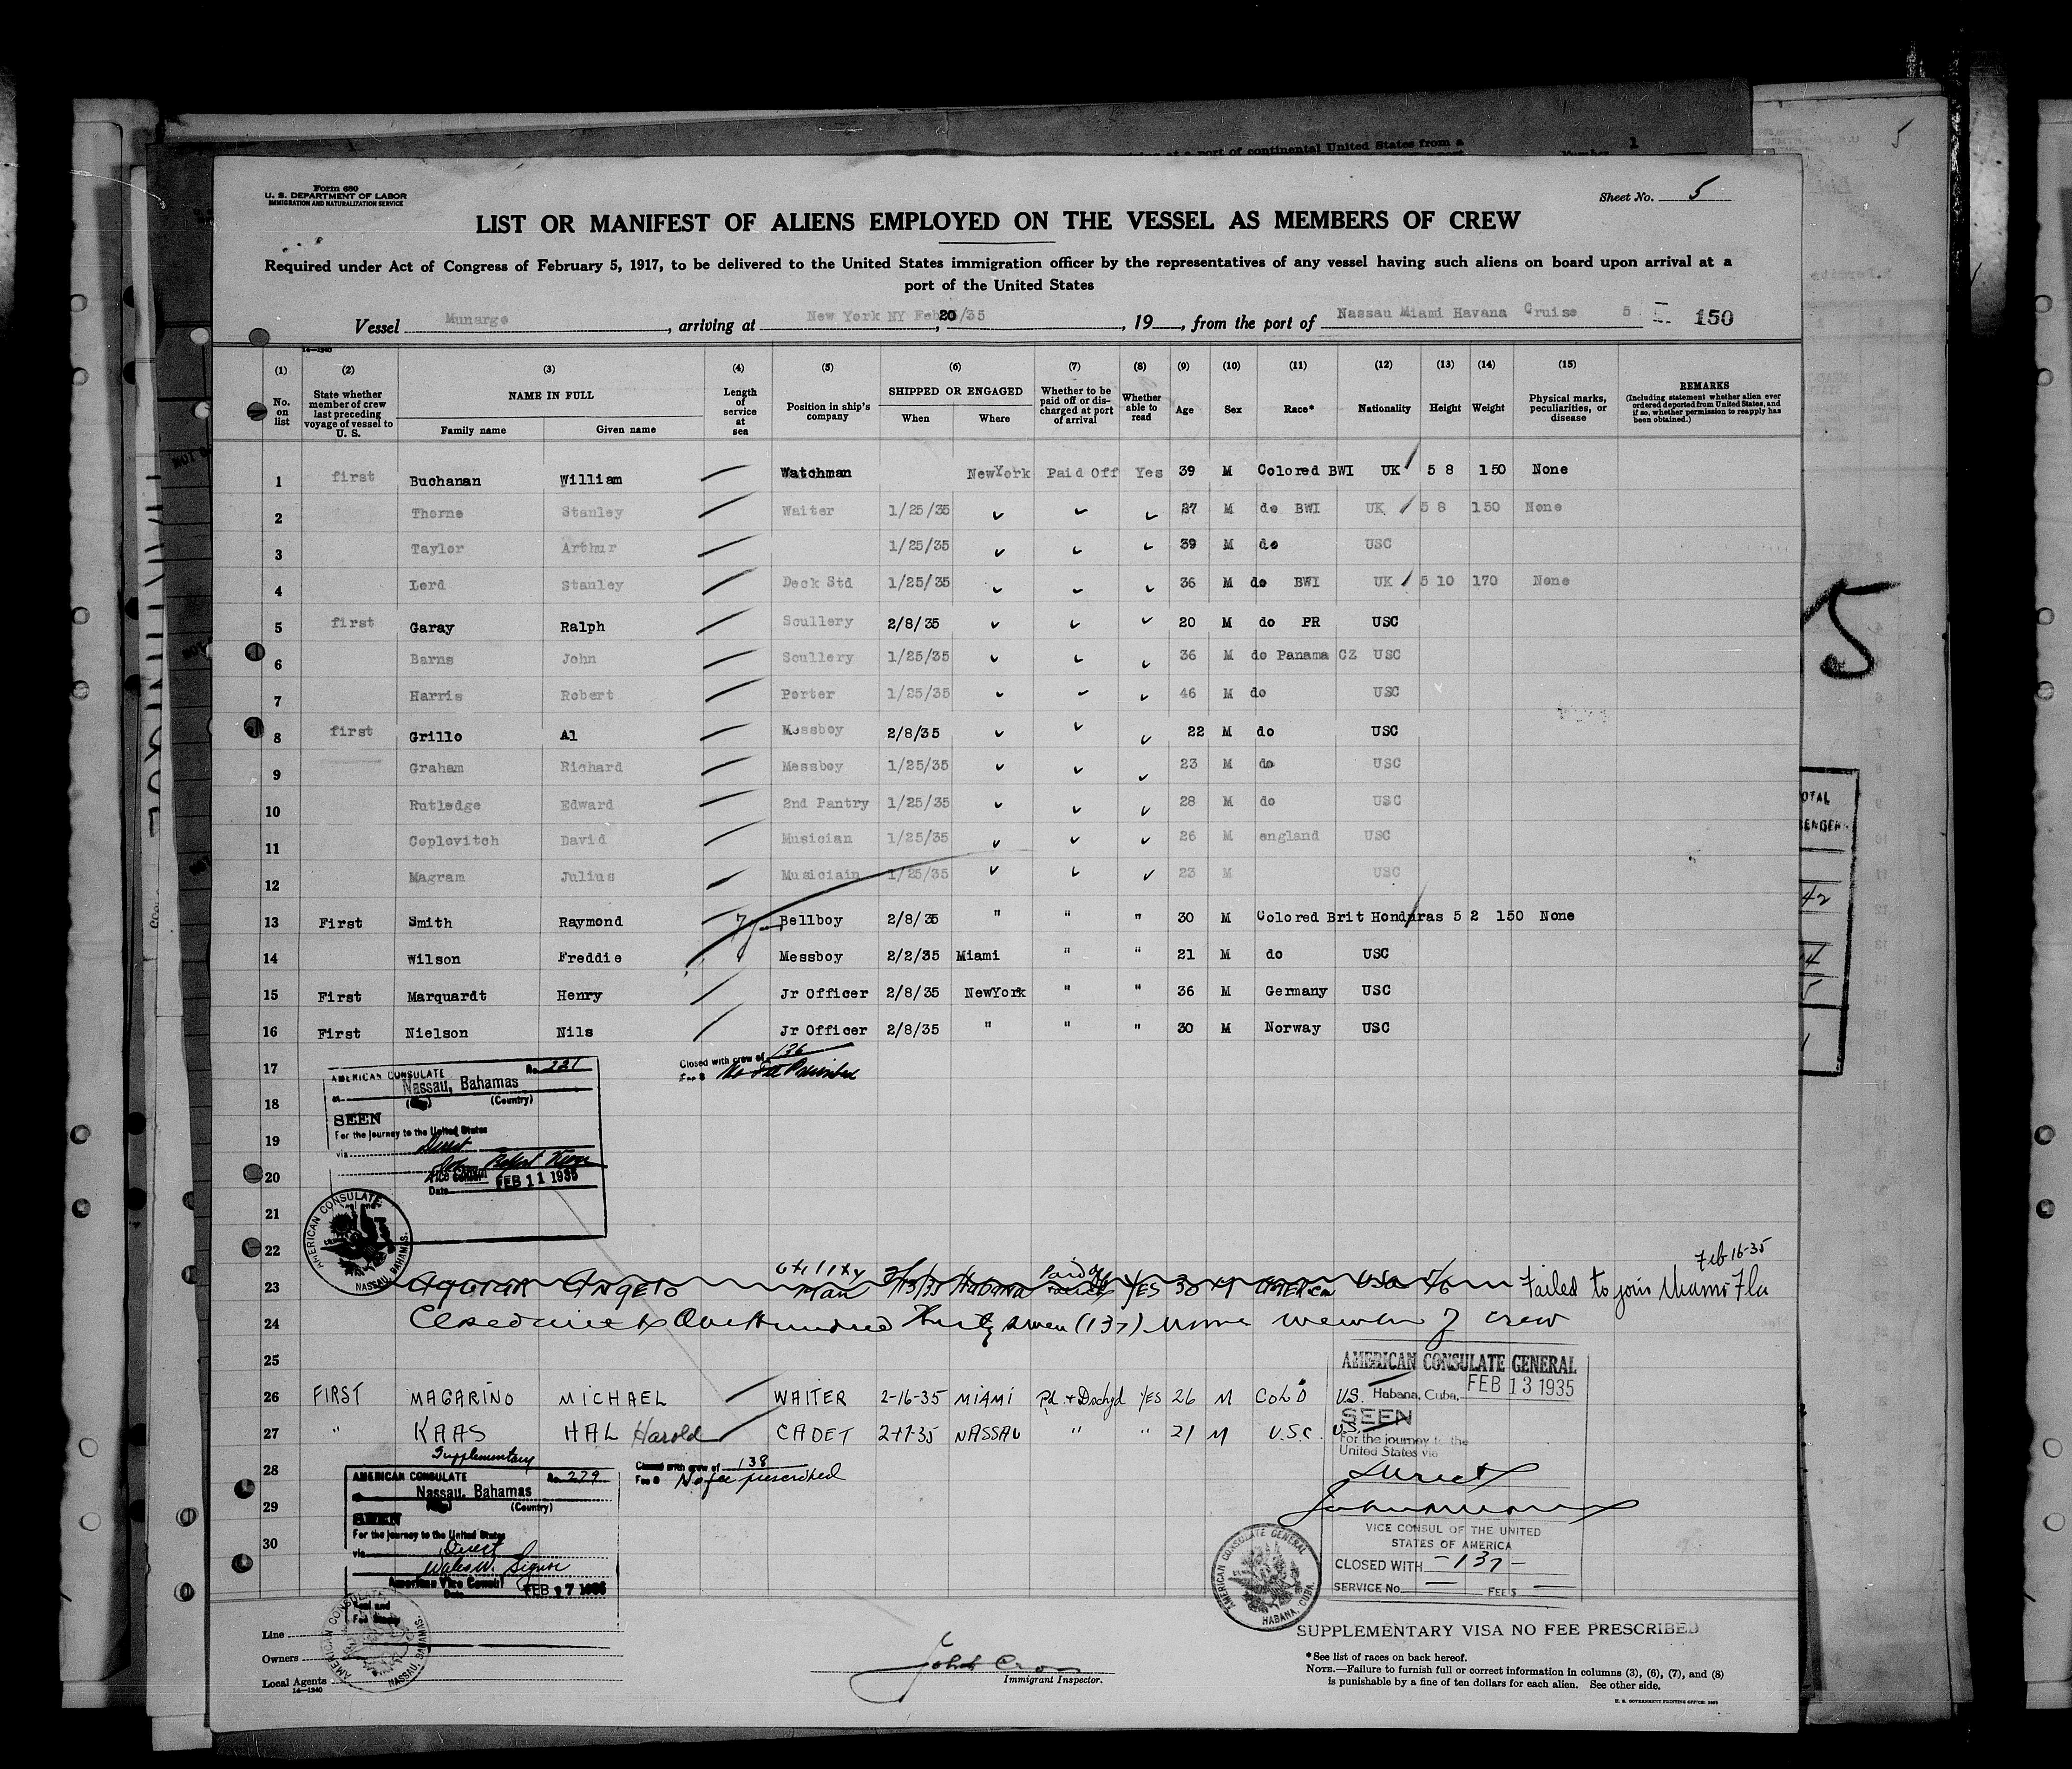 ing at a port of continental United States from a
Number 1
5
Form 680
U. S. DEPARTMENT OF LABOR
IMMIGRATION AND NATURALIZATION SERVICE
Sheet No. 5
LIST OR MANIFEST OF ALIENS EMPLOYED ON THE VESSEL AS MEMBERS OF CREW
Required under Act of Congress of February 5, 1917, to be delivered to the United States immigration officer by the representatives of any vessel having such aliens on board upon arrival at a
port of the United States
Vessel Munargo, arriving at New York NY Feb 20/35, 19, from the port of Nassau Miami Havana Cruise 5 150
14—1240
(1) (2) (3) (4) (5) (6) (7) (8) (9) (10) (11) (12) (13) (14) (15)
No. on list
State whether member of crew last preceding voyage of vessel to U. S.
NAME IN FULL
Family name Given name
Length of service at sea
Position in ship's company
SHIPPED OR ENGAGED
When Where
Whether to be paid off or discharged at port of arrival
Whether able to read
Age
Sex
Race*
Nationality
Height
Weight
Physical marks, peculiarities, or disease
REMARKS
(Including statement whether alien ever ordered deported from United States, and if so, whether permission to reapply has been obtained.)
1 first Buchanan William Watchman NewYork Paid Off Yes 39 M Colored BWI UK 5 8 150 None
2 Thorne Stanley Waiter 1/25/35 ✓ ✓ ✓ 27 M do BWI UK 5 8 150 None
3 Taylor Arthur 1/25/35 ✓ ✓ ✓ 39 M do USC
4 Lord Stanley Deck Std 1/25/35 ✓ ✓ ✓ 36 M do BWI UK 5 10 170 None
5 first Garay Ralph Scullery 2/8/35 ✓ ✓ ✓ 20 M do PR USC
6 Barns John Scullery 1/25/35 ✓ ✓ ✓ 36 M do Panama CZ USC
7 Harris Robert Porter 1/25/35 ✓ ✓ ✓ 46 M do USC
8 first Grillo Al Messboy 2/8/35 ✓ ✓ ✓ 22 M do USC
9 Graham Richard Messboy 1/25/35 ✓ ✓ ✓ 23 M do USC
10 Rutledge Edward 2nd Pantry 1/25/35 ✓ ✓ ✓ 28 M do USC
11 Coplovitch David Musician 1/25/35 ✓ ✓ ✓ 26 M england USC
12 Magram Julius Musiciain 1/25/35 ✓ ✓ ✓ 23 M USC
13 First Smith Raymond Bellboy 2/8/35 " " " 30 M Colored Brit Honduras 5 2 150 None
14 Wilson Freddie Messboy 2/2/35 Miami " " 21 M do USC
15 First Marquardt Henry Jr Officer 2/8/35 NewYork " " 36 M Germany USC
16 First Nielson Nils Jr Officer 2/8/35 " " " 30 M Norway USC
17
Closed with crew of 136
Fee $ No Fee Prescribed
AMERICAN CONSULATE No. 221
at Nassau, Bahamas
(Country)
18
SEEN
For the journey to the United States
19
via Direct
20
Vice Consul
Date FEB 11 1935
AMERICAN CONSULATE
NASSAU, BAHAMAS.
21
22
Feb 16-35
23 Aguiar Angelo Utility Man 2/13/35 Habana Paid off YES 30 M USA 5/6 Failed to join Miami Fla
24 Closed with One Hundred Thirty Seven (137) members of crew
25
AMERICAN CONSULATE GENERAL
26 FIRST MAGARINO MICHAEL WAITER 2-16-35 MIAMI Pd + Dschgd YES 26 M COL'D U.S.
Habana, Cuba, FEB 13 1935
27 " KAAS HAL Harold CADET 2-17-35 NASSAU " " 21 M U.S.C. U.S.
SEEN
For the journey to the
United States via
Direct
Supplementary
28
Closed with crew of 138
Fee $ No fee prescribed
AMERICAN CONSULATE No. 229
Nassau, Bahamas
(Country)
29
SEEN
For the journey to the United States
30
via Direct
American Vice Consul
Date FEB 17 1935
Seal and
Fee Stamp
AMERICAN CONSULATE
NASSAU, BAHAMAS.
VICE CONSUL OF THE UNITED
STATES OF AMERICA
CLOSED WITH -137-
SERVICE No. — FEE $ —
AMERICAN CONSULATE GENERAL
HABANA, CUBA.
SUPPLEMENTARY VISA NO FEE PRESCRIBED
Line
Owners
Local Agents
14—1240
Immigrant Inspector.
*See list of races on back hereof.
NOTE.—Failure to furnish full or correct information in columns (3), (6), (7), and (8)
is punishable by a fine of ten dollars for each alien. See other side.
U. S. GOVERNMENT PRINTING OFFICE
5